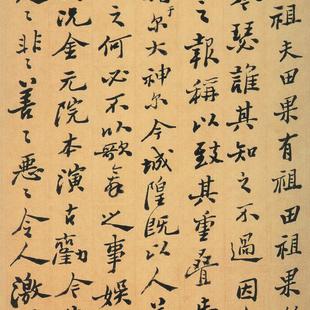 祖夫田果有祖田祖果
瑟誰其知之不過因
之報稱以致其重疊
于尔大神尔今城隍既以人
之何必不以歌舞之事娛
況金元院本演古勸今
非々善々惡々令人激